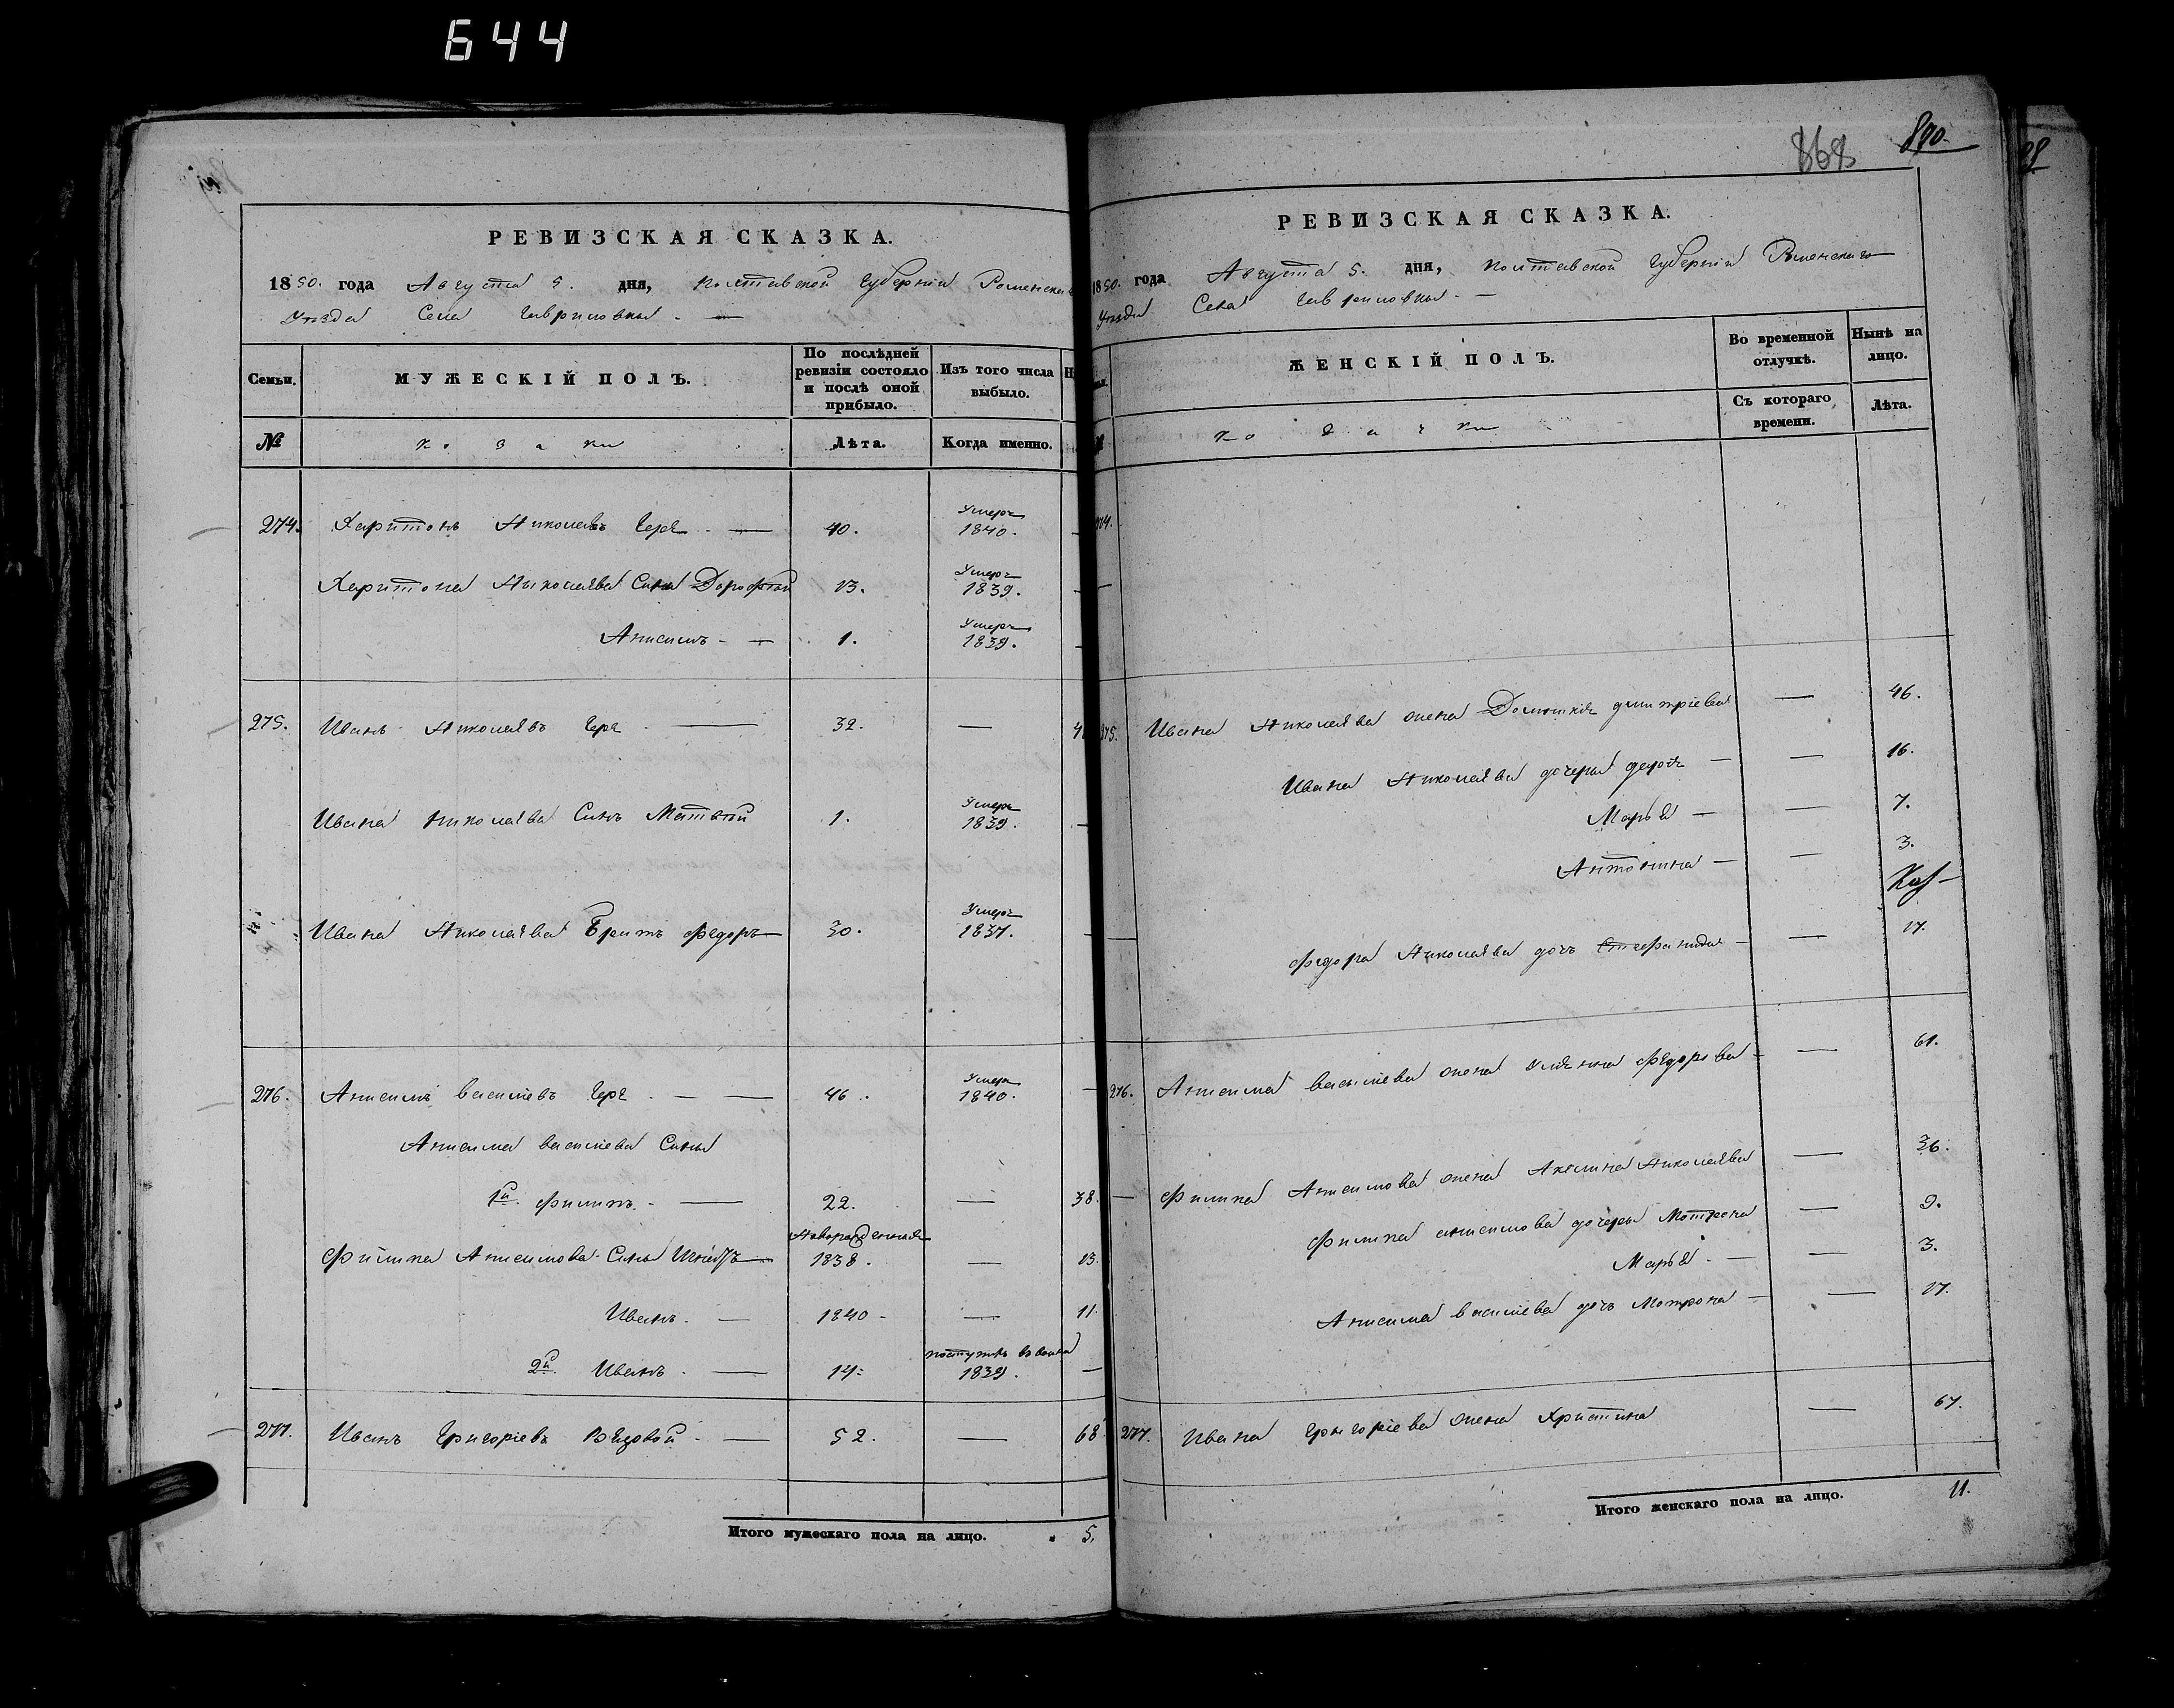 644
РЕВИЗСКАЯ СКАЗКА.
1850. года Августа 5. дня, Полтавской Губерніи Роменскаго
Уѣзда Села Гавриловки. —
Семьи. МУЖЕСКІЙ ПОЛЪ. По послѣдней ревизіи состояло и послѣ оной прибыло. Изъ того числа выбыло.
№ козаки Лѣта. Когда именно.
274. Харитонъ Николаевъ — 40. Умеръ 1840.
Харитона Николаева Сынъ Дорофѣй 13. Умеръ 1839.
Анисимъ — 1. Умеръ 1839.
275. Иванъ Николаевъ — 32. —
Ивана Николаева Сынъ Матвѣй 1. Умеръ 1839.
Ивана Николаева Братъ Федоръ 30. Умеръ 1837.
276. Анисимъ Василіевъ — 46. Умеръ 1840. —
Анисима Василіева Сыны
1й Филипъ — 22. — 38.
Филипа Анисимова Сыны 1838. — 13.
Иванъ — 1840 — 11.
2й Иванъ — 14. 1839. —
277. Иванъ Григоріевъ — 52. — 68
Итого мужескаго пола на лицо. 5.
868 870.
РЕВИЗСКАЯ СКАЗКА.
1850. года Августа 5. дня, Полтавской Губерніи Роменскаго
Уѣзда Села Гавриловки. —
ЖЕНСКІЙ ПОЛЪ. Во временной отлучкѣ. Нынѣ на лицо.
козачки Съ котораго времени. Лѣта.
274.
275. Ивана Николаева жена Домникія Дмитріева — 46.
Ивана Николаева дочери — 16.
Марья — — 7.
Антонина — — 3.
Федора Николаева дочь Стефанида — — 17.
276. Анисима Василіева жена Уліянна Федорова — — 61.
Филипа Анисимова жена Акилина Николаева — 36.
Филипа Анисимова дочери Мотрона — 9.
Марья — — 3.
Анисима Василіева дочь Мотрона — — 17.
277. Ивана Григоріева жена Христина — 67.
Итого женскаго пола на лицо. 11.